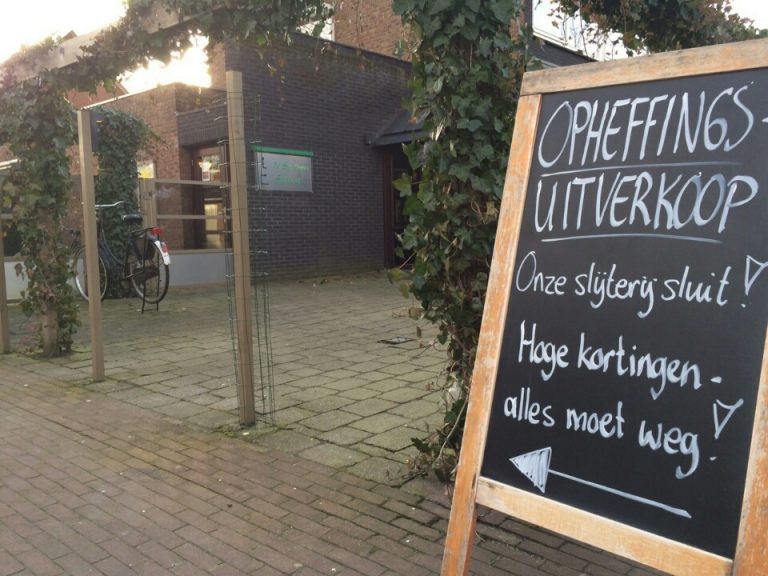 OPHEFFINGS-
UITVERKOOP
Onze slijterij sluit!
Hoge kortingen -
alles moet weg!